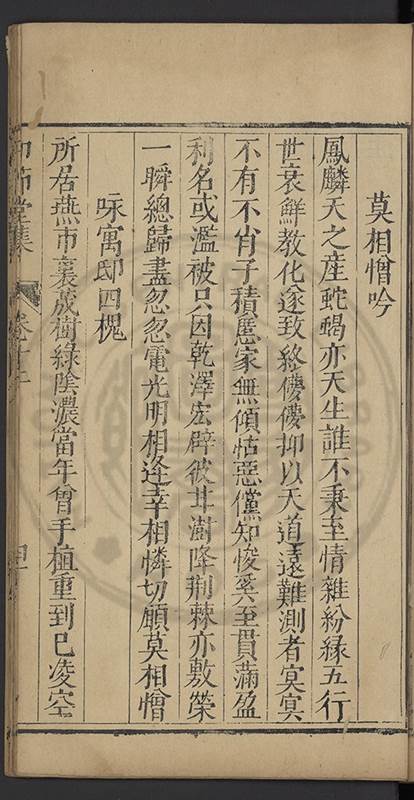 莫相憎吟
鳳麟天之產蛇蝎亦天生誰不秉至情雜紛緣五行
世衰鮮教化遂致終儚儚抑以天道遠難測者冥冥
不有不肖子積慝家無傾怙惡儻知悛奚至貫滿盈
利名或濫被只因乾澤宏辟彼甘澍降荆棘亦敷榮
一瞬總歸盡忽忽電光明相逢幸相憐切願莫相憎
咏寓邸四槐
所居燕市裏茂樹綠陰濃當年曾手植重到已凌空
節堂集
卷十
四